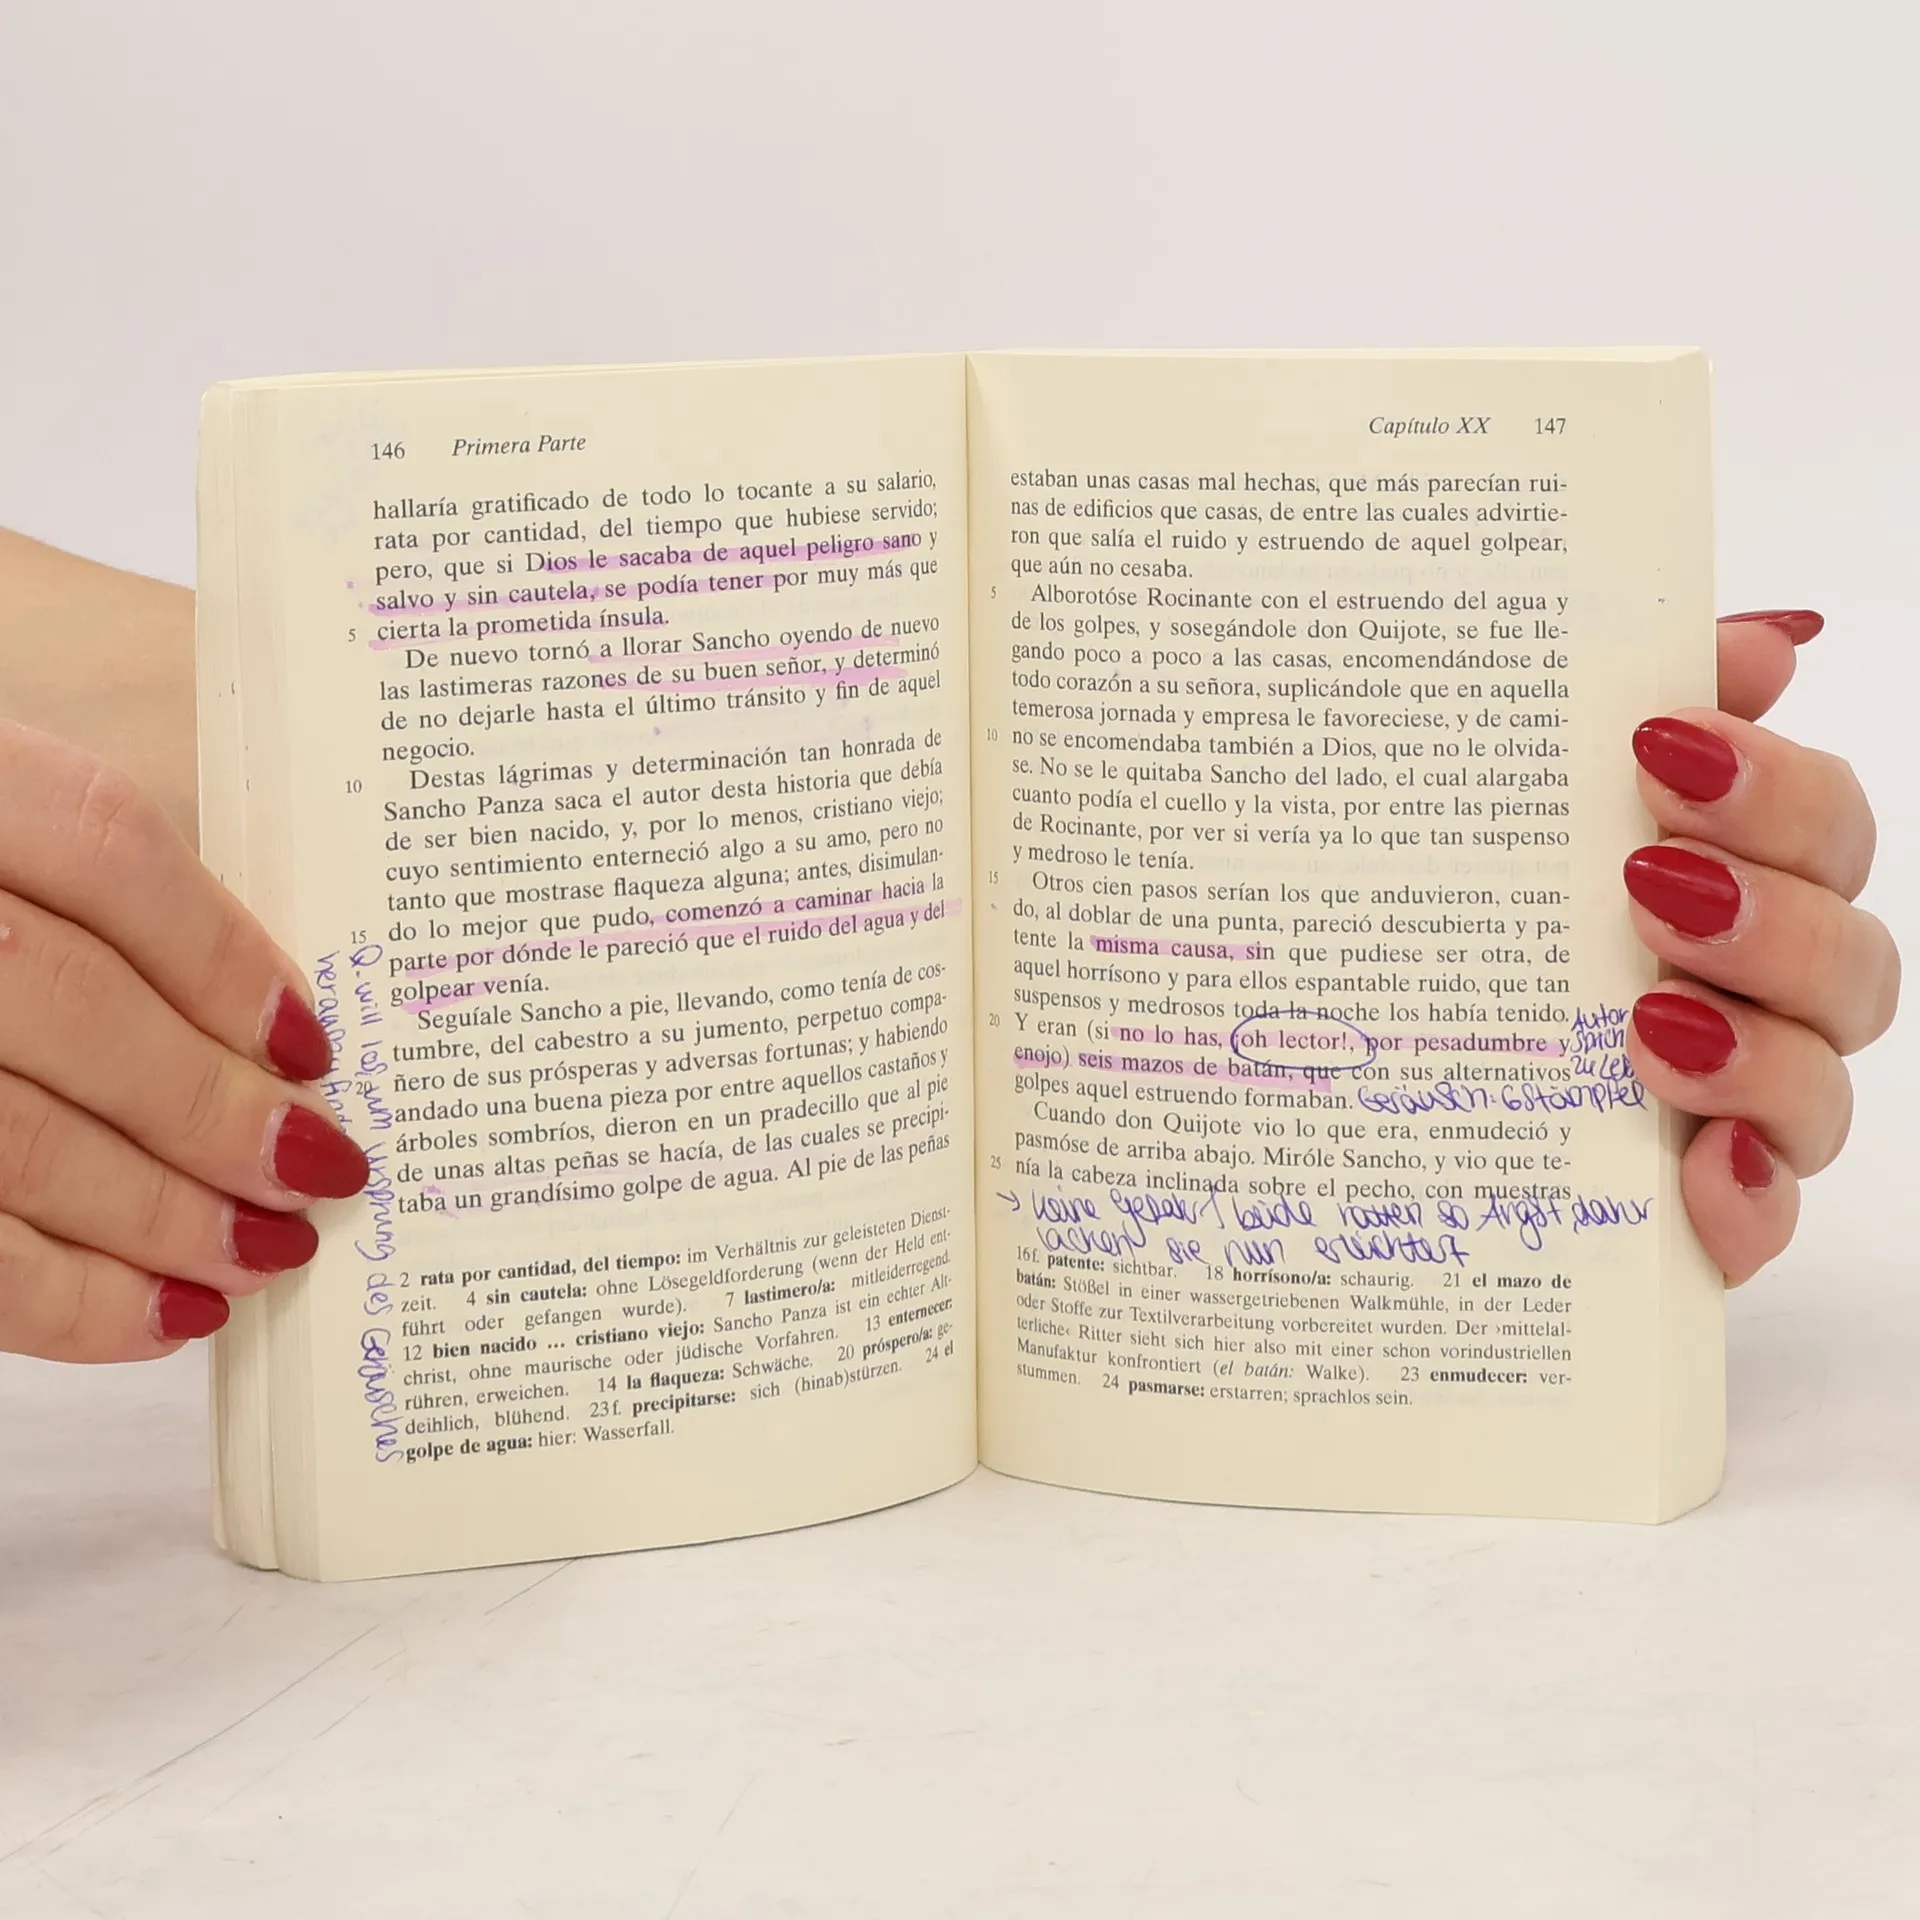 146 Primera Parte
hallaría gratificado de todo lo tocante a su salario,
rata por cantidad, del tiempo que hubiese servido;
pero, que si Dios le sacaba de aquel peligro sano y
salvo y sin cautela, se podía tener por muy más que
5 cierta la prometida ínsula.
De nuevo tornó a llorar Sancho oyendo de nuevo
las lastimeras razones de su buen señor, y determinó
de no dejarle hasta el último tránsito y fin de aquel
negocio.
10 Destas lágrimas y determinación tan honrada de
Sancho Panza saca el autor desta historia que debía
de ser bien nacido, y, por lo menos, cristiano viejo;
cuyo sentimiento enterneció algo a su amo, pero no
tanto que mostrase flaqueza alguna; antes, disimulan-
15 do lo mejor que pudo, comenzó a caminar hacia la
parte por dónde le pareció que el ruido del agua y del
golpear venía.
Seguíale Sancho a pie, llevando, como tenía de cos-
tumbre, del cabestro a su jumento, perpetuo compa-
20 ñero de sus prósperas y adversas fortunas; y habiendo
andado una buena pieza por entre aquellos castaños y
árboles sombríos, dieron en un pradecillo que al pie
de unas altas peñas se hacía, de las cuales se precipi-
taba un grandísimo golpe de agua. Al pie de las peñas
Q. will Ursprung des Geräusches
2 rata por cantidad, del tiempo: im Verhältnis zur geleisteten Dienst-
zeit. 4 sin cautela: ohne Lösegeldforderung (wenn der Held ent-
führt oder gefangen wurde). 7 lastimero/a: mitleiderregend.
12 bien nacido ... cristiano viejo: Sancho Panza ist ein echter Alt-
christ, ohne maurische oder jüdische Vorfahren. 13 enternecer:
rühren, erweichen. 14 la flaqueza: Schwäche. 20 próspero/a: ge-
deihlich, blühend. 23 f. precipitarse: sich (hinab)stürzen. 24 el
golpe de agua: hier: Wasserfall.
Capítulo XX 147
estaban unas casas mal hechas, que más parecían rui-
nas de edificios que casas, de entre las cuales advirtie-
ron que salía el ruido y estruendo de aquel golpear,
que aún no cesaba.
5 Alborotóse Rocinante con el estruendo del agua y
de los golpes, y sosegándole don Quijote, se fue lle-
gando poco a poco a las casas, encomendándose de
todo corazón a su señora, suplicándole que en aquella
temerosa jornada y empresa le favoreciese, y de cami-
10 no se encomendaba también a Dios, que no le olvida-
se. No se le quitaba Sancho del lado, el cual alargaba
cuanto podía el cuello y la vista, por entre las piernas
de Rocinante, por ver si vería ya lo que tan suspenso
y medroso le tenía.
15 Otros cien pasos serían los que anduvieron, cuan-
do, al doblar de una punta, pareció descubierta y pa-
tente la misma causa, sin que pudiese ser otra, de
aquel horrísono y para ellos espantable ruido, que tan
suspensos y medrosos toda la noche los había tenido.
20 Y eran (si no lo has, ¡oh lector!, por pesadumbre y
enojo) seis mazos de batán, que con sus alternativos
golpes aquel estruendo formaban.
Autor
zu
Geräusch: 6 Stämpfel
Cuando don Quijote vio lo que era, enmudeció y
pasmóse de arriba abajo. Miróle Sancho, y vio que te-
25 nía la cabeza inclinada sobre el pecho, con muestras
→ keine Gefahr, beide hatten so Angst, daher
lachen sie nun erleichtert
16 f. patente: sichtbar. 18 horrísono/a: schaurig. 21 el mazo de
batán: Stößel in einer wassergetriebenen Walkmühle, in der Leder
oder Stoffe zur Textilverarbeitung vorbereitet wurden. Der ›mittelal-
terliche‹ Ritter sieht sich hier also mit einer schon vorindustriellen
Manufaktur konfrontiert (el batán: Walke). 23 enmudecer: ver-
stummen. 24 pasmarse: erstarren; sprachlos sein.